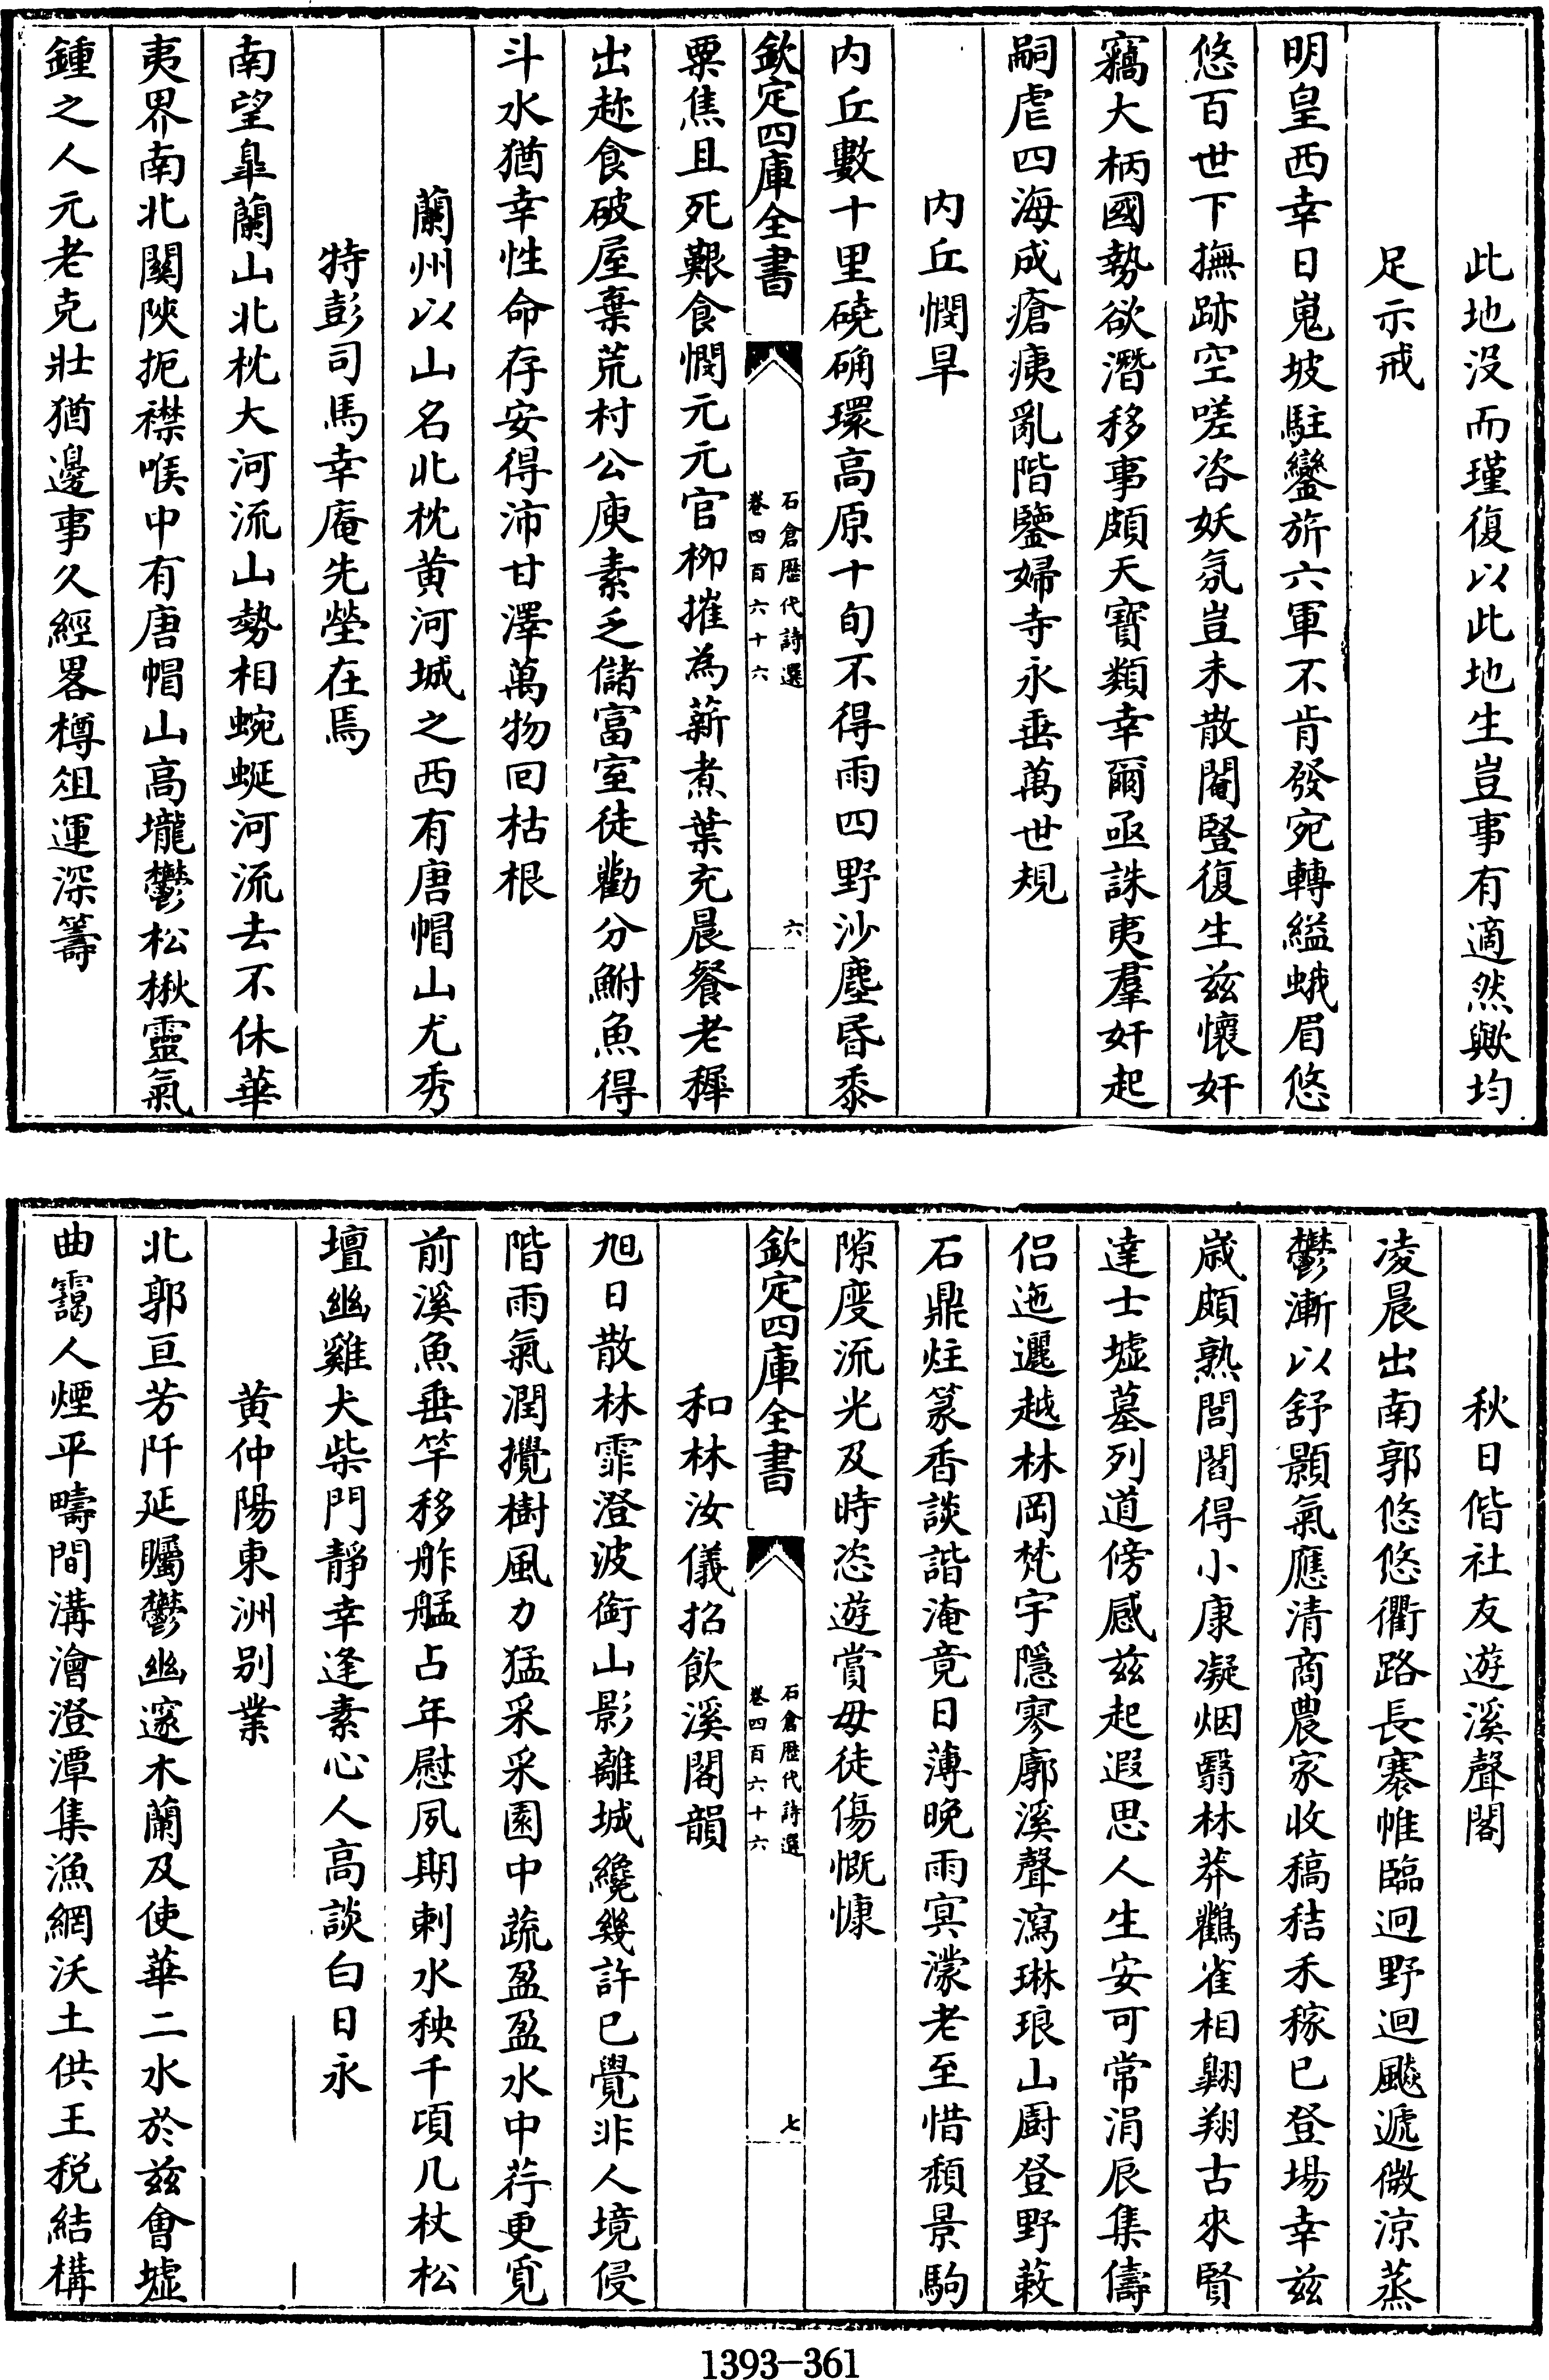 此地没而瑾復以此地生豈事有適然歟均
足示戒
明皇西幸日嵬坡駐鑾旂六軍不肯發宛轉縊蛾眉悠
悠百世下撫跡空嗟咨妖氛豈未散閹豎復生兹懷奸
竊大柄國勢欲潛移事頗天寶類幸爾亟誅夷羣奸起
嗣虐四海成瘡痍亂階鑒婦寺永垂萬世規
内丘憫旱
内丘數十里磽确環高原十旬不得雨四野沙塵昏黍
欽定四庫全書
石倉歴代詩選
卷四百六十六
六
粟焦且死艱食憫元元官柳摧為薪煮葉充晨餐老穉
出趂食破屋棄荒村公庾素乏儲富室徒勸分鮒魚得
斗水猶幸性命存安得沛甘澤萬物回枯根
蘭州以山名北枕黄河城之西有唐帽山尤秀
特彭司馬幸庵先塋在焉
南望臯蘭山北枕大河流山勢相蜿蜒河流去不休華
夷界南北闗陜扼襟喉中有唐帽山高壠鬱松楸靈氣
鍾之人元老克壯猶邊事久經畧樽俎運深籌
秋日偕社友遊溪聲閣
凌晨出南郭悠悠衢路長褰帷臨迥野迴颷遞微涼蒸
鬱漸以舒顥氣應清商農家收稿秸禾稼已登場幸兹
歳頗熟閭閻得小康凝烟翳林莽鸛雀相翺翔古來賢
達士墟墓列道傍感兹起遐思人生安可常涓辰集儔
侣迤邐越林岡梵宇隱寥廓溪聲瀉琳琅山廚登野蔌
石鼎炷篆香談諧淹竟日薄晚雨㝠濛老至惜頽景駒
隙度流光及時恣遊賞毋徒傷慨慷
欽定四庫全書
石倉歴代詩選
卷四百六十六
七
和林汝儀招飲溪閣韻
旭日散林霏澄波銜山影離城纔幾許已覺非人境侵
階雨氣潤攪樹風力猛采采園中蔬盈盈水中荇更覔
前溪魚垂竿移舴艋占年慰夙期剌水秧千頃几杖松
壇幽雞犬柴門靜幸逢素心人高談白日永
黄仲陽東洲别業
北郭亘芳阡延矚鬱幽邃木蘭及使華二水於兹會墟
曲靄人煙平疇間溝澮澄潭集漁網沃土供王税結構
1393-361